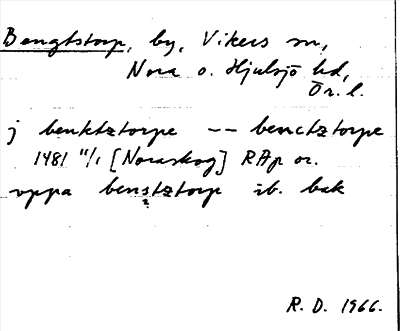 Bengtstorp, by, Vikers sn,
Nora o. Hjulsjö hd,
Ör. l.
j benktztorpe -- benctztorpe
1481 11/1 [Noraskog] RAp or.
vppa benstztorp ib. bak
R. D. 1966.